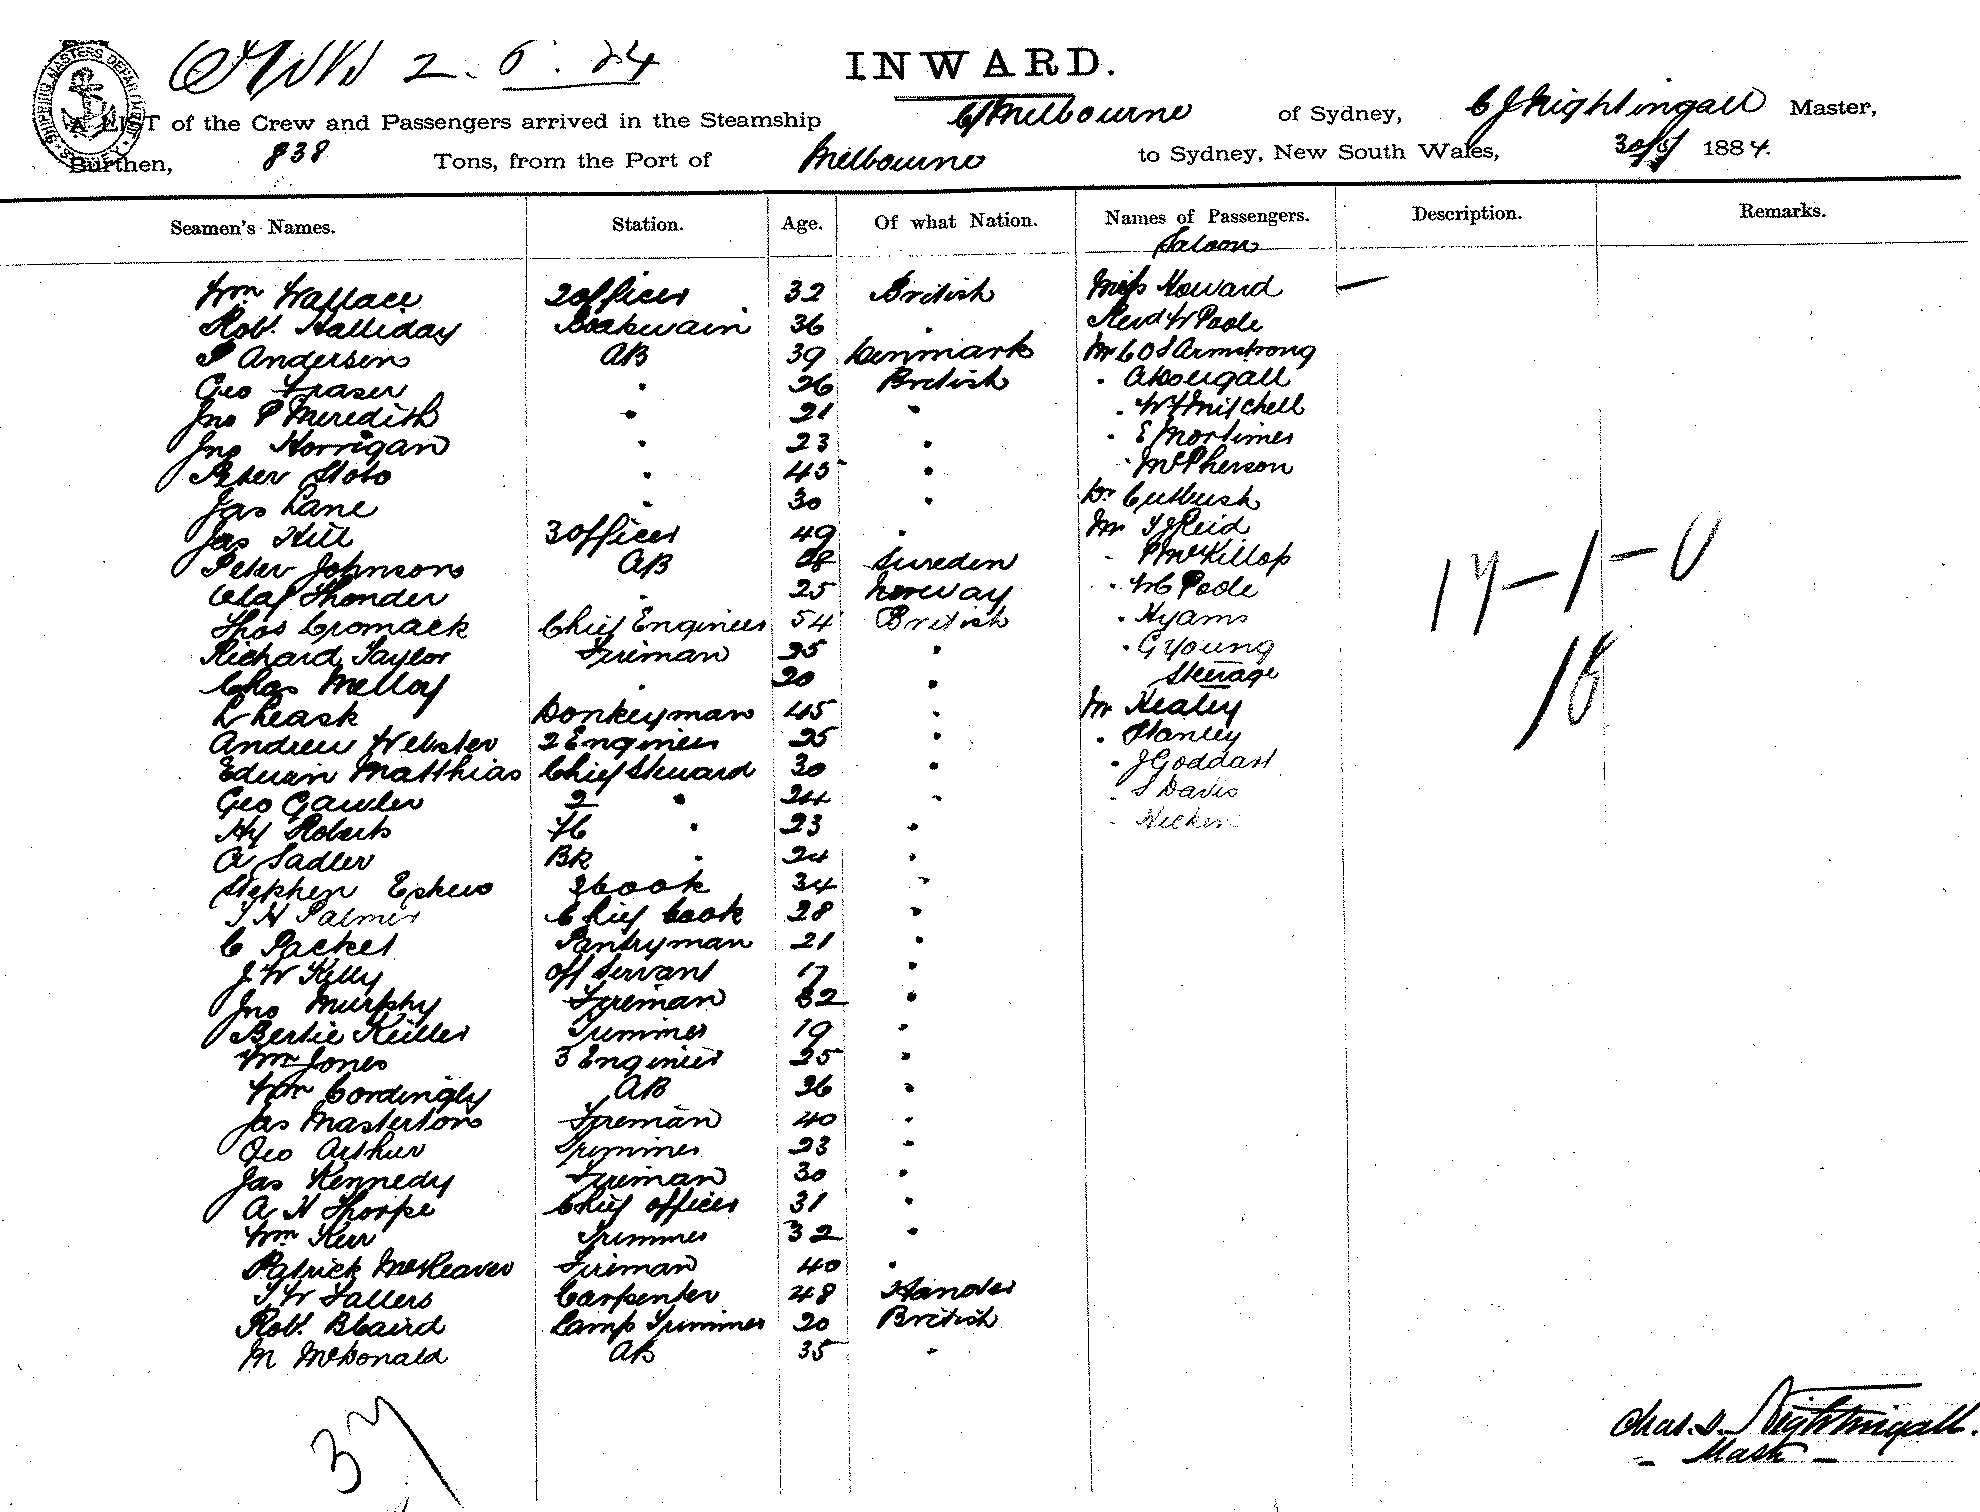 2. 6. 84
INWARD.
A LIST of the Crew and Passengers arrived in the Steamship C/Melbourne of Sydney, C J Nightingall Master,
Burthen, 838 Tons, from the Port of Melbourne to Sydney, New South Wales, 30/5/ 1884.
Seamen's Names. Station. Age. Of what Nation. Names of Passengers. Description. Remarks.
Saloon
Wm Wallace 2 Officer 32 British Miss Howard —
Robt. Halliday Boatswain 36 " Revd W Poole
P Andersen AB 39 Denmark Mr C O S Armstrong
Geo Fraser " 26 British " A Dougall
Jno P Meredith " 21 " " W F Mitchell
Jno Horrigan " 23 " " E Mortimer
Peter Stoto " 45 " " McPherson
Jas Lane " 30 " Dr Cutbush
Jas Hill 3 Officer 49 " Mr T J Reid
Peter Johnson AB 28 Sweden " P McKillop
Olaf Thonder " 25 Norway " W C Poole
Thos Cromack Chief Engineer 54 British " Hyams
Richard Taylor Fireman 25 " " G Young
Steerage
Chas Melloy " 20 "
L Leask Donkeyman 45 " Mr Healey
Andrew Webster 2 Engineer 25 " " Stanley
Edwin Matthias Chief Steward 30 " " J Goddart
Geo Gawler 2 " 24 " " S Davis
Hy Roberts FC " 23 " "
A Sadler BK " 24 "
Stephen Eskew 2 Cook 34 "
T H Palmer Chief Cook 28 "
C Packet Pantryman 21 "
J W Kelly Off Servant 17 "
Jno Murphy Fireman 32 "
Bertie Keiller Trimmer 19 "
Wm Jones 3 Engineer 25 "
Wm Cordingly AB 26 "
Jas Masterton Fireman 40 "
Geo Arthur Trimmer 23 "
Jas Kennedy Fireman 30 "
A H Thorpe Chief Officer 31 "
Wm Kerr Trimmer 32 "
Patrick McKeaver Fireman 40 "
T W Sallers Carpenter 48 Flanders
Robt. B Laird Lamp Trimmer 20 British
M McDonald AB 35 "
17 — 1 — 0
18
37
Chas. J. Nightingall.
— Mastr —